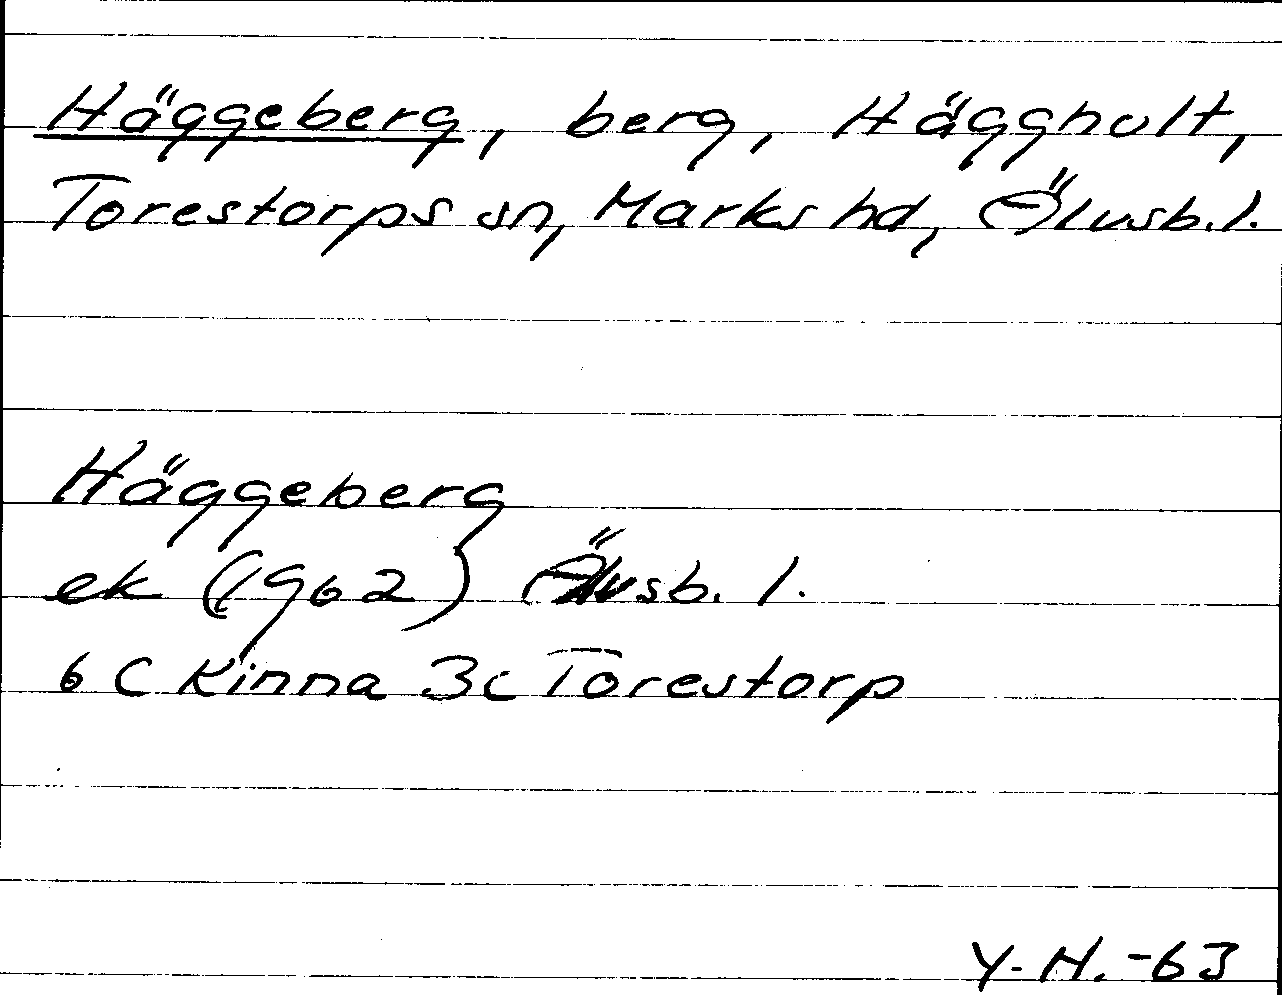 Häggeberg, berg, Häggholt,
Torestorps sn, Marks hd, Älvsb. l.
Häggeberg
ek (1962) Älvsb. l.
6 C Kinna 3c Torestorp
Y. H. -63